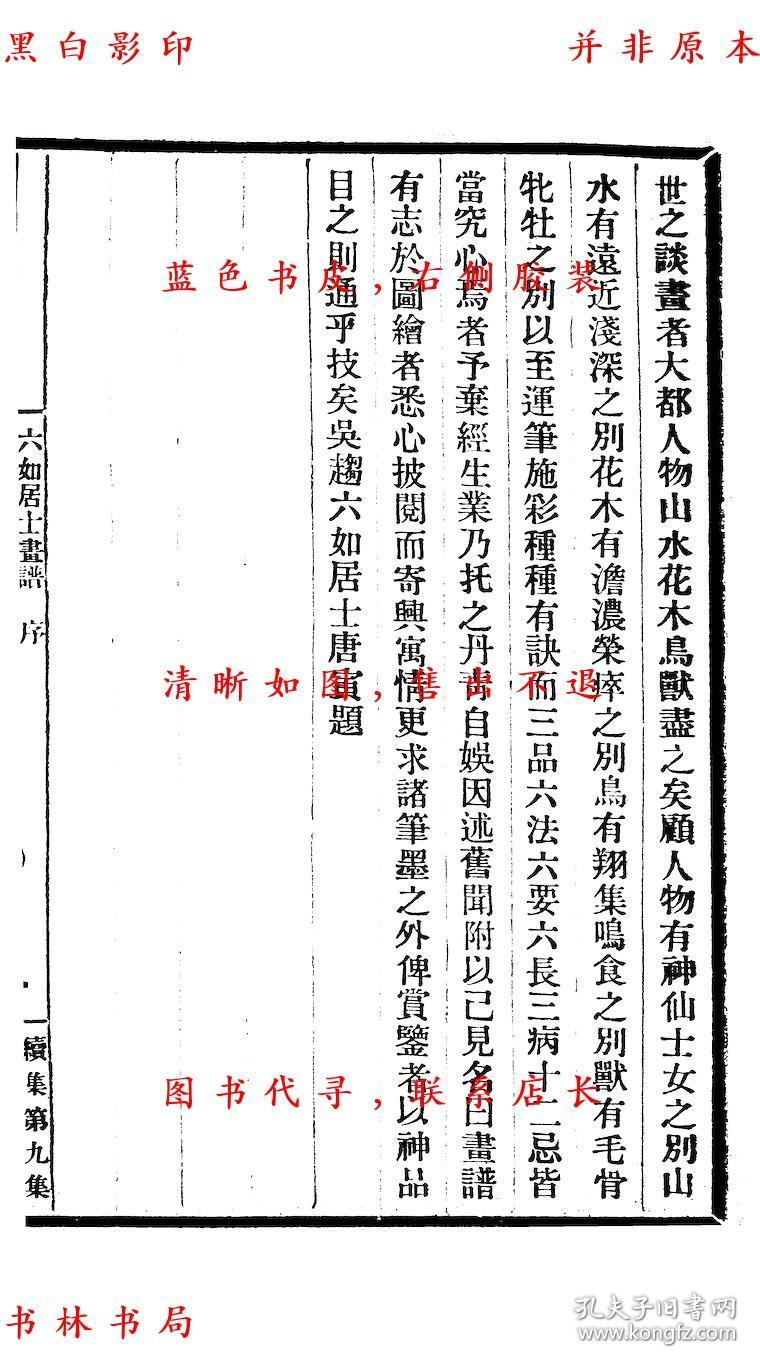 黑白影印
并非原本
世之談畫者大都人物山水花木鳥獸盡之矣顧人物有神仙士女之別山
水有遠近淺深之別花木有澹濃榮瘁之別鳥有翔集鳴食之別獸有毛骨
牝牡之別以至運筆施彩種種有訣而三品六法六要六長三病十二忌皆
當究心焉者予棄經生業乃托之丹靑自娛因述舊聞附以己見名曰畫譜
有志於圖繪者悉心披閱而寄興寓情更求諸筆墨之外俾賞鑒者以神品
目之則通乎技矣吳趨六如居士唐寅題
六如居士畫譜 序
續集第九集
蓝色书皮,右侧胶装
清晰如图,售出不退
图书代寻,联系店长
书林书局
孔夫子旧书网
www.kongfz.com